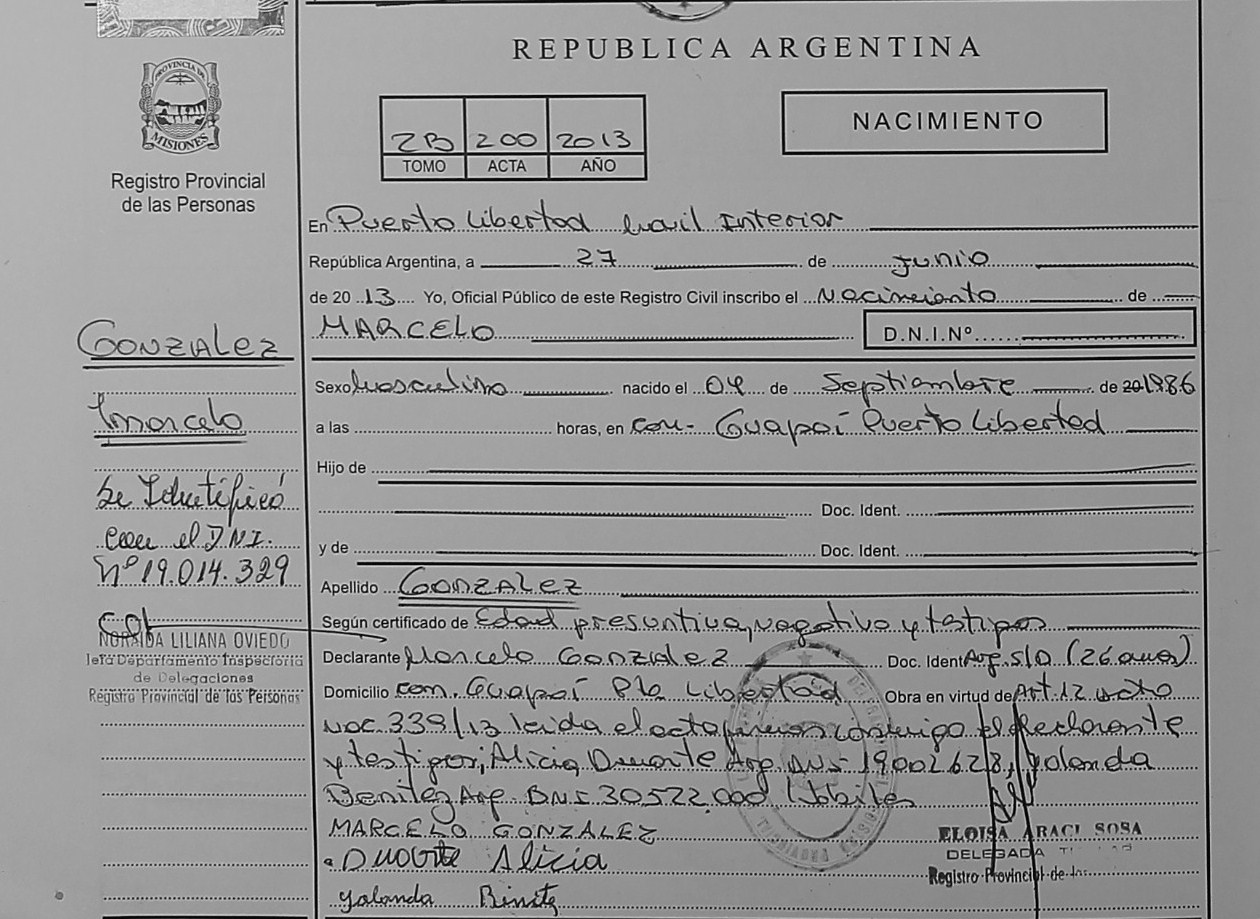 PROVINCIA DE
MISIONES
Registro Provincial
de las Personas
GONZALEZ
Marcelo
Se Identificó
con el D.N.I.
Nº 19.014.329
NORAIDA LILIANA OVIEDO
Jefa Departamento Inspectoria
de Delegaciones
Registro Provincial de las Personas
REPUBLICA ARGENTINA
2B 200 2013
TOMO ACTA AÑO
NACIMIENTO
En Puerto Libertad Interior
República Argentina, a 27 de Junio
de 2013 Yo, Oficial Público de este Registro Civil inscribo el Nacimiento de
MARCELO D.N.I.Nº
Sexo Masculino nacido el 04 de Septiembre de 20 1986
a las horas, en com- Guapoí Puerto Libertad
Hijo de
Doc. Ident.
y de Doc. Ident.
Apellido GONZALEZ
Según certificado de Edad presuntiva, negativo y testigos
Declarante Marcelo GONZALEZ Doc. Ident Arg. S/D (26 años)
Domicilio com. Guapoí Pto Libertad Obra en virtud de Art. 12
339/13 leida el acta firman conmigo el declarante
y testigos; Alicia Duarte Arg. DNI 19002628, Yolanda
Benitez Arg. DNI 30522000 hábiles
MARCELO GONZALEZ
DUARTE Alicia
Yolanda Binitez
ELOISA ARACI SOSA
DELEGADA
Registro Provincial de las